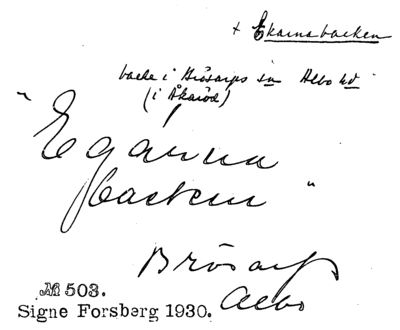 + Ekarnabacken
backe i Brösarps sn Albo hd
(i Åkaröd)
"Egárna
backen"
Brösarp
Albo
№ 503.
Signe Forsberg 1930.